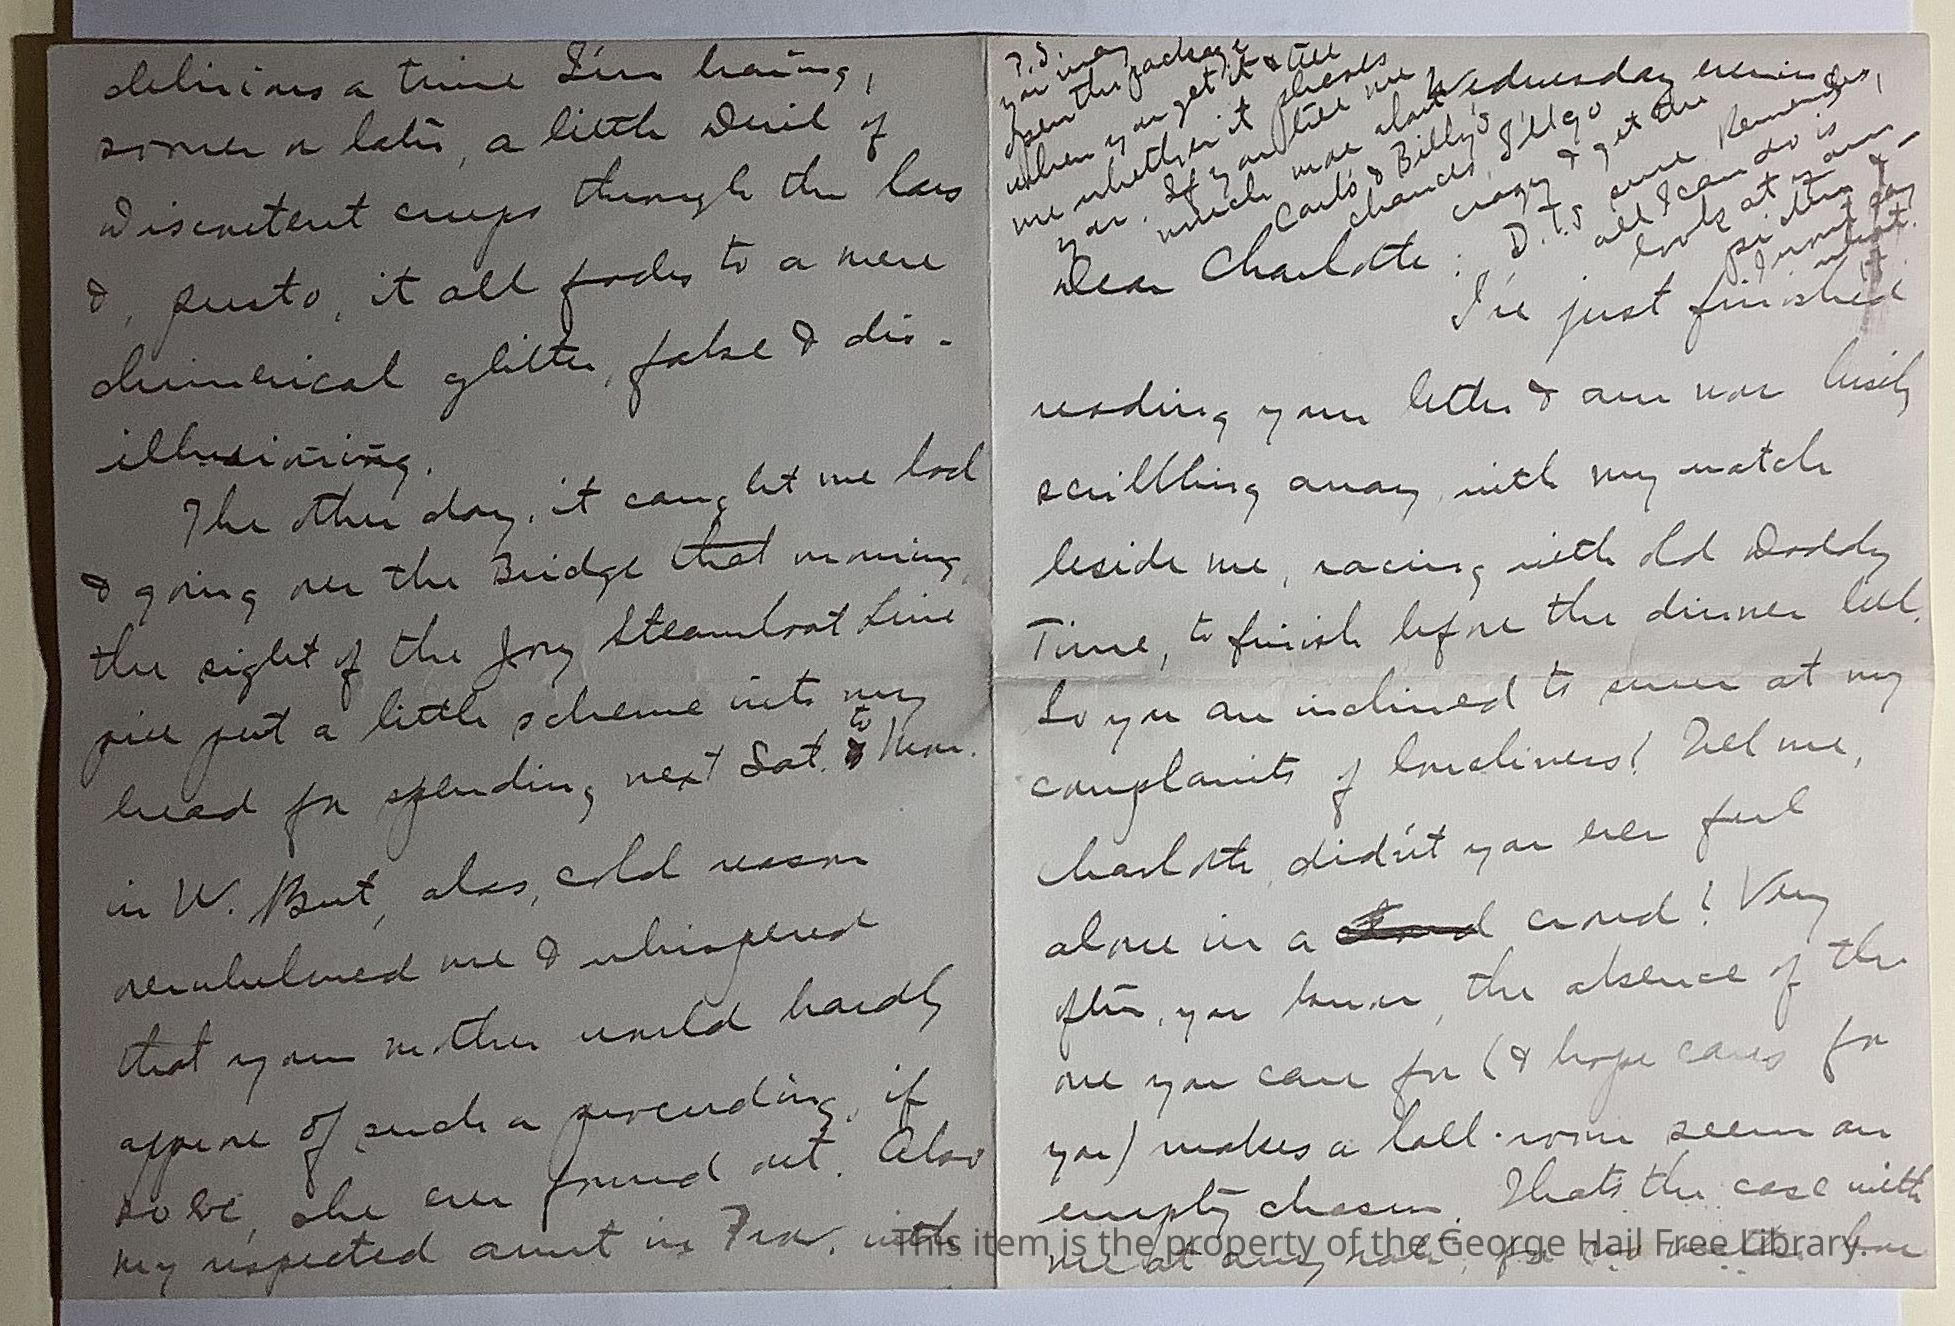 P.S. may
you
open the package
when you get it & tell
me whether it pleases
you. If you tell me
much more about
Carl's & Billy's
chances, I'll go
crazy & get the
D.T's sure. Remember,
all I can do is
look at your
picture &
I won't say
what.
Wednesday evening
Dear Charlotte:
I've just finished
reading your letter & am now busily
scribbling away with my watch
beside me, racing with old Daddy
Time, to finish before the dinner bell.
So you are inclined to sneer at my
complaints of loneliness! Tell me,
Charlotte, didn't you ever feel
alone in a crowd? Very
often, you know, the absence of the
one you care for (& hope cares for
you) makes a ball-room seem an
empty chasm. That's the case with
me at any rate, for no matter how
delicious a time I'm having,
sooner or later, a little Devil of
Discontent creeps through the bars
&, presto, it all fades to a mere
chimerical glitter, false & dis-
illusioning.
The other day, it caught me bad
& going over the Bridge that morning,
the sight of the Joy Steamboat Line
pier put a little scheme into my
head for spending next Sat. to Mon.
in W. But, alas, cold reason
overwhelmed me & whispered
that your mother would hardly
approve of such a proceeding, if
so be, she ever found out. Also
my respected aunt in Prov. with
This item is the property of the George Hail Free Library.